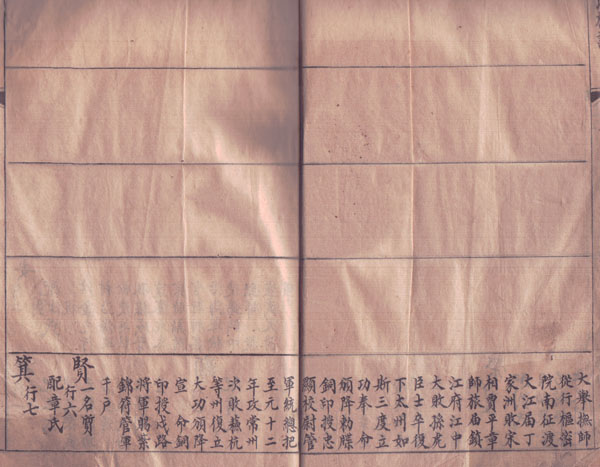 大舉撫師
從行樞密
院南征渡
大江甪丁
家洲敗宋
相賈平章
師旅甪鎖
江府江中
大敗孫虎
臣士卒復
下太州如
斯三度立
功奉 命
頒降勅牒
銅印授忠
顯校尉管
軍統總把
至元十二
年攻常州
次收蘇杭
等州復立
大功頒降
宣 命銅
印投戍路
將軍賜紫
錦符管軍
千戶
賢一名賀
行六
配章氏
箕行七